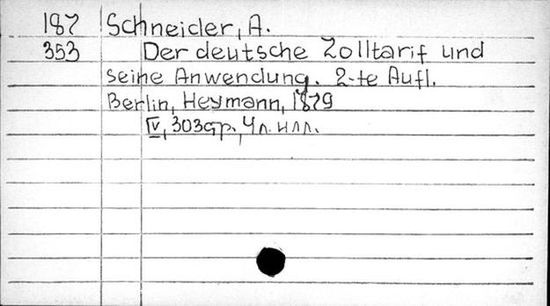 187 Schneider, A.
353 Der deutsche Zolltarif und
seine Anwendung. 2-te Aufl.
Berlin, Heymann, 1879
IV, 303 стр., 4 л. илл.